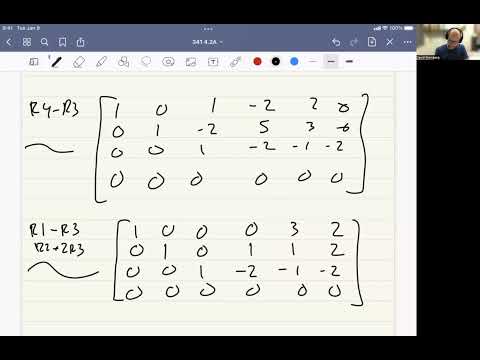 9:41 Tue Jan 9
100%
341 4.2A
R4-R3
1 0 1 -2 2 0
0 1 -2 5 3 -6
0 0 1 -2 -1 -2
0 0 0 0 0 0
R1-R3
R2+2R3
1 0 0 0 3 2
0 1 0 1 1 2
0 0 1 -2 -1 -2
0 0 0 0 0 0